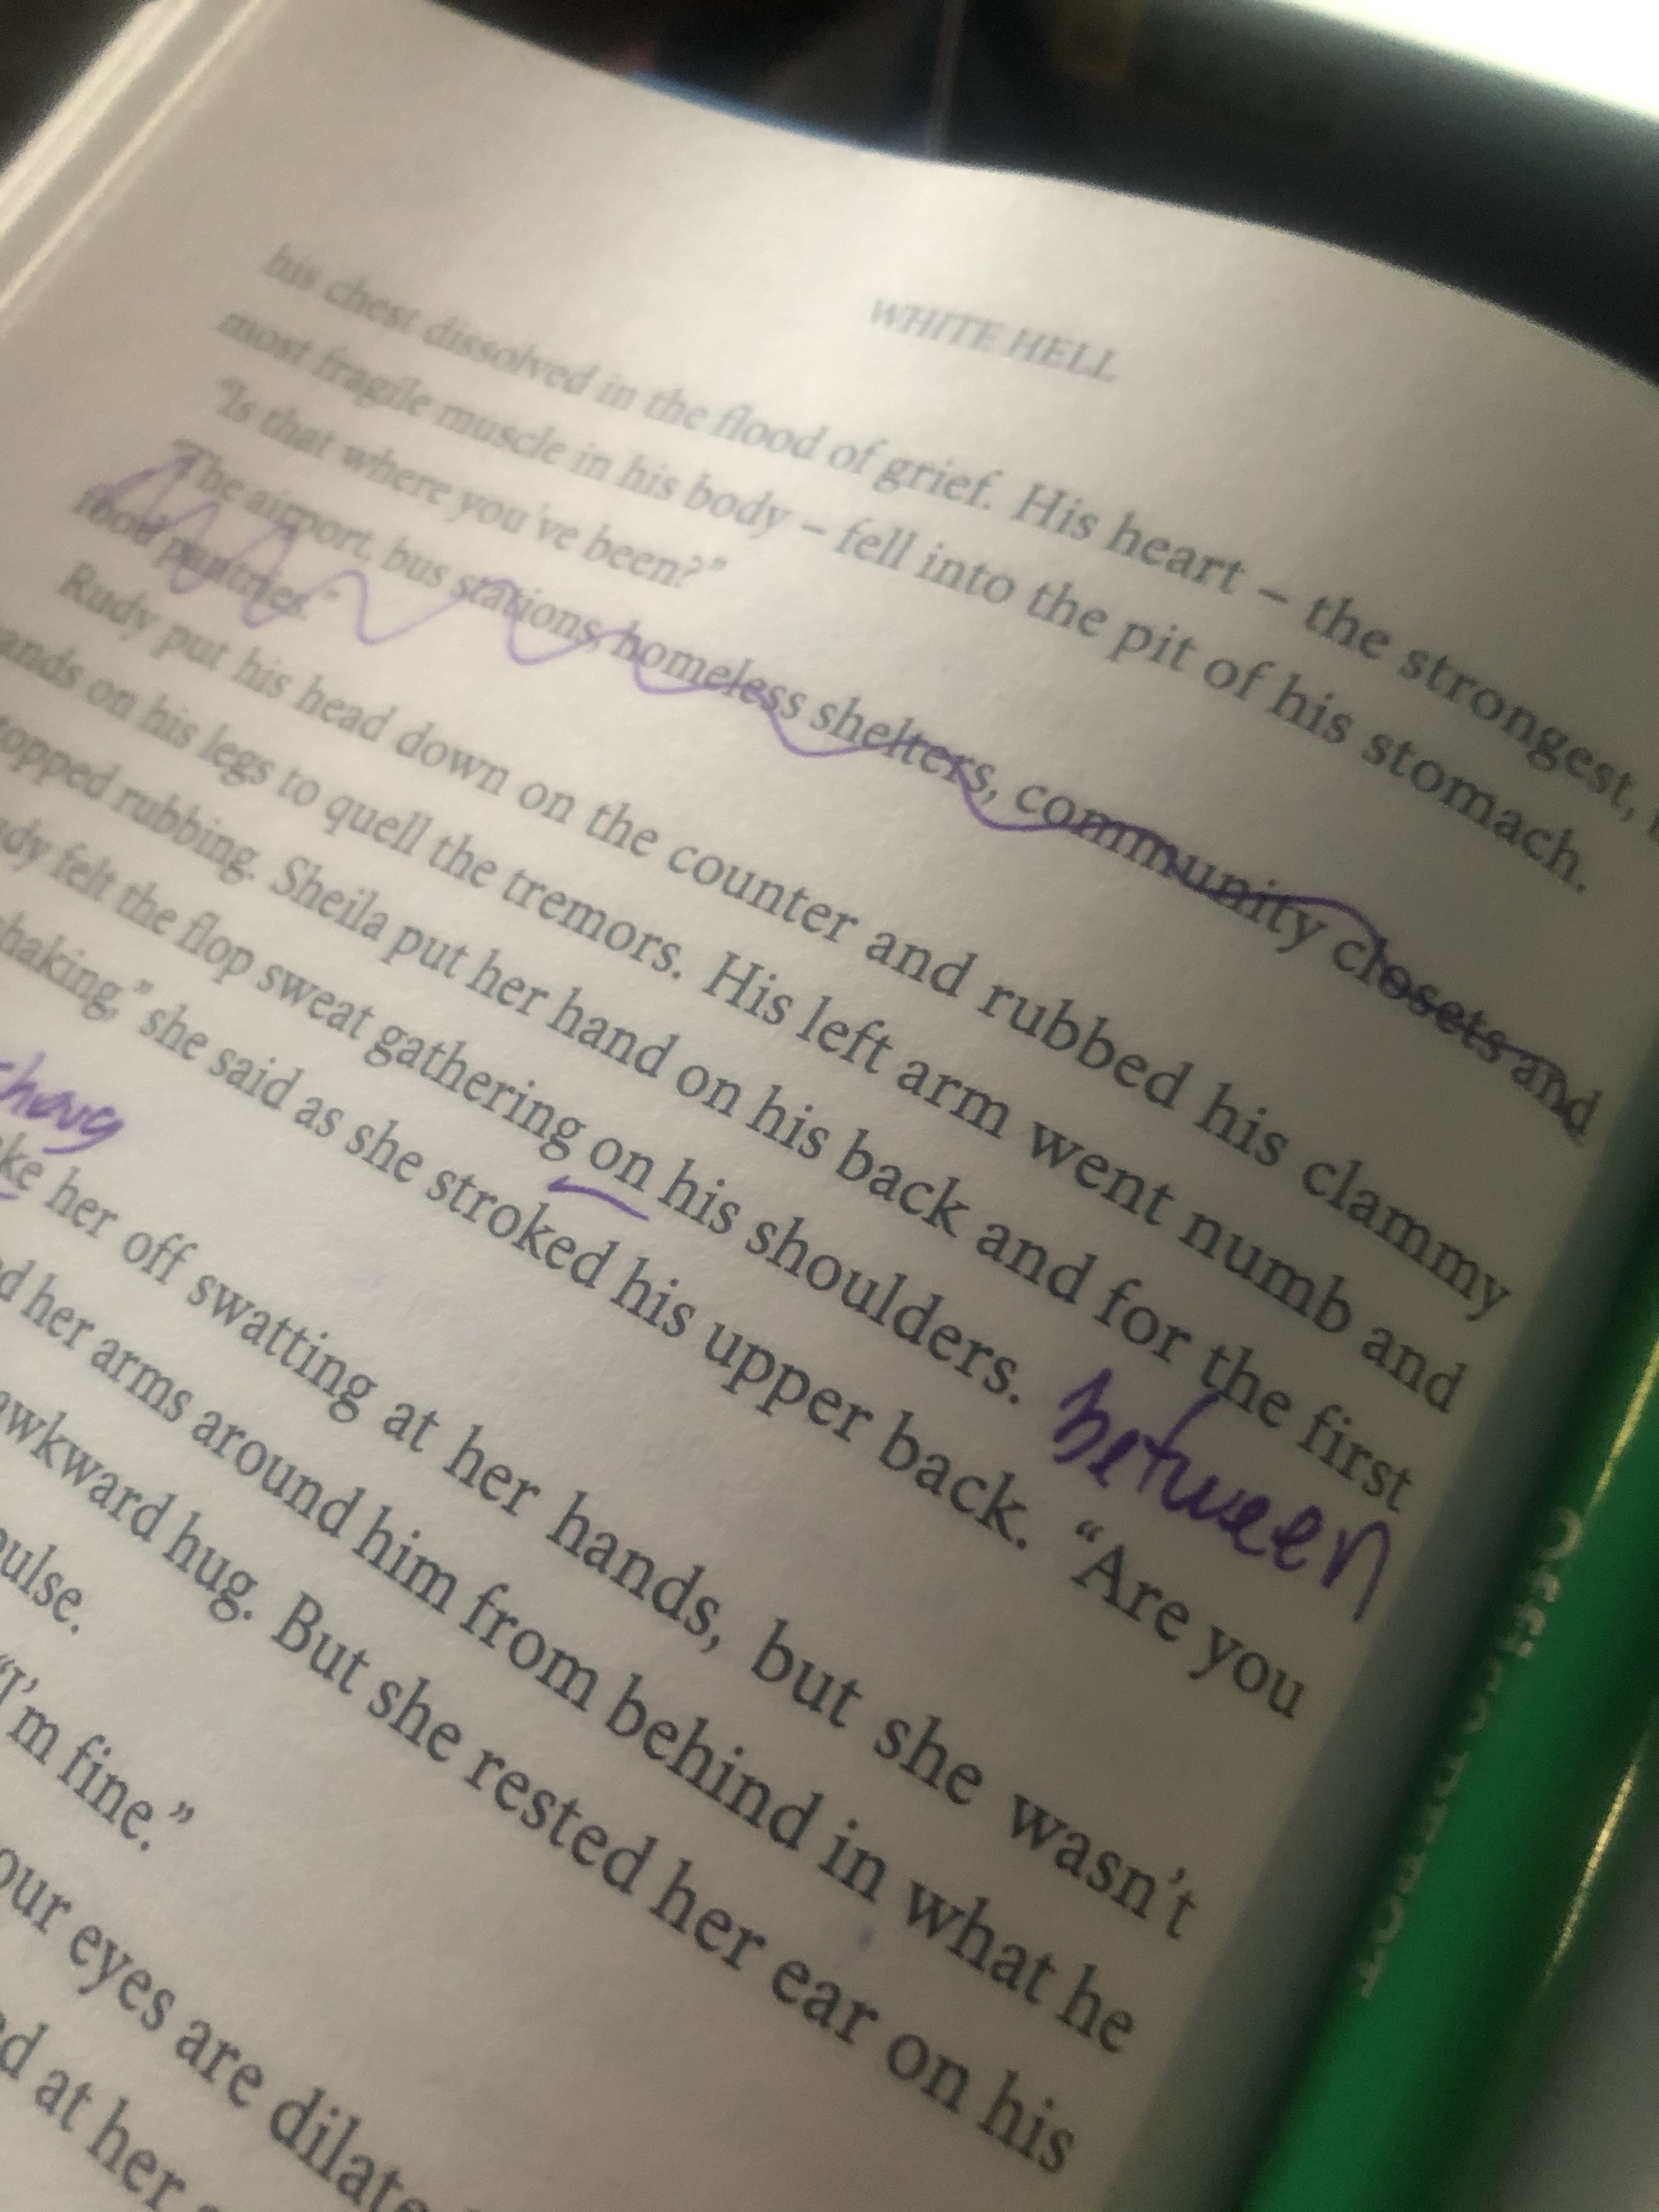 WHITE HELL
his chest dissolved in the flood of grief. His heart – the strongest,
most fragile muscle in his body – fell into the pit of his stomach.
“Is that where you’ve been?”
“The airport, bus stations, homeless shelters, community closets and
food pantries.”
Rudy put his head down on the counter and rubbed his clammy
ands on his legs to quell the tremors. His left arm went numb and
topped rubbing. Sheila put her hand on his back and for the first
dy felt the flop sweat gathering on his shoulders.
between
haking,” she said as she stroked his upper back. “Are you
ke her off swatting at her hands, but she wasn’t
d her arms around him from behind in what he
awkward hug. But she rested her ear on his
pulse.
“I’m fine.”
our eyes are dilate
d at her